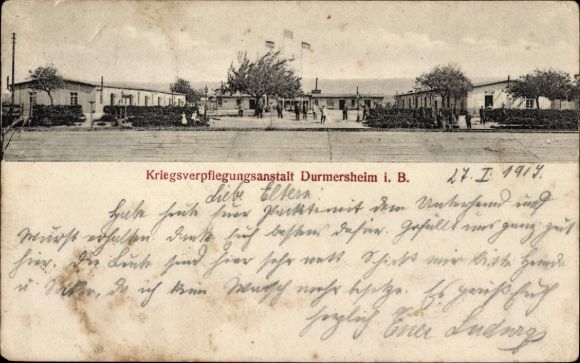 Kriegsverpflegungsanstalt Durmersheim i. B.
27. I. 1917.
Liebe Eltern
Habe heute hier Packte mit dem Unterhemd und
Wurst erhalten. Danke Euch bestens dafür. Gefällt uns ganz gut
hier. Die Leute sind hier sehr nett. Schickt mir bitte Hemde
u Socken, da ich kein Wasch mehr besitze. Es grüßt Euch
herzlich Euer Ludwig